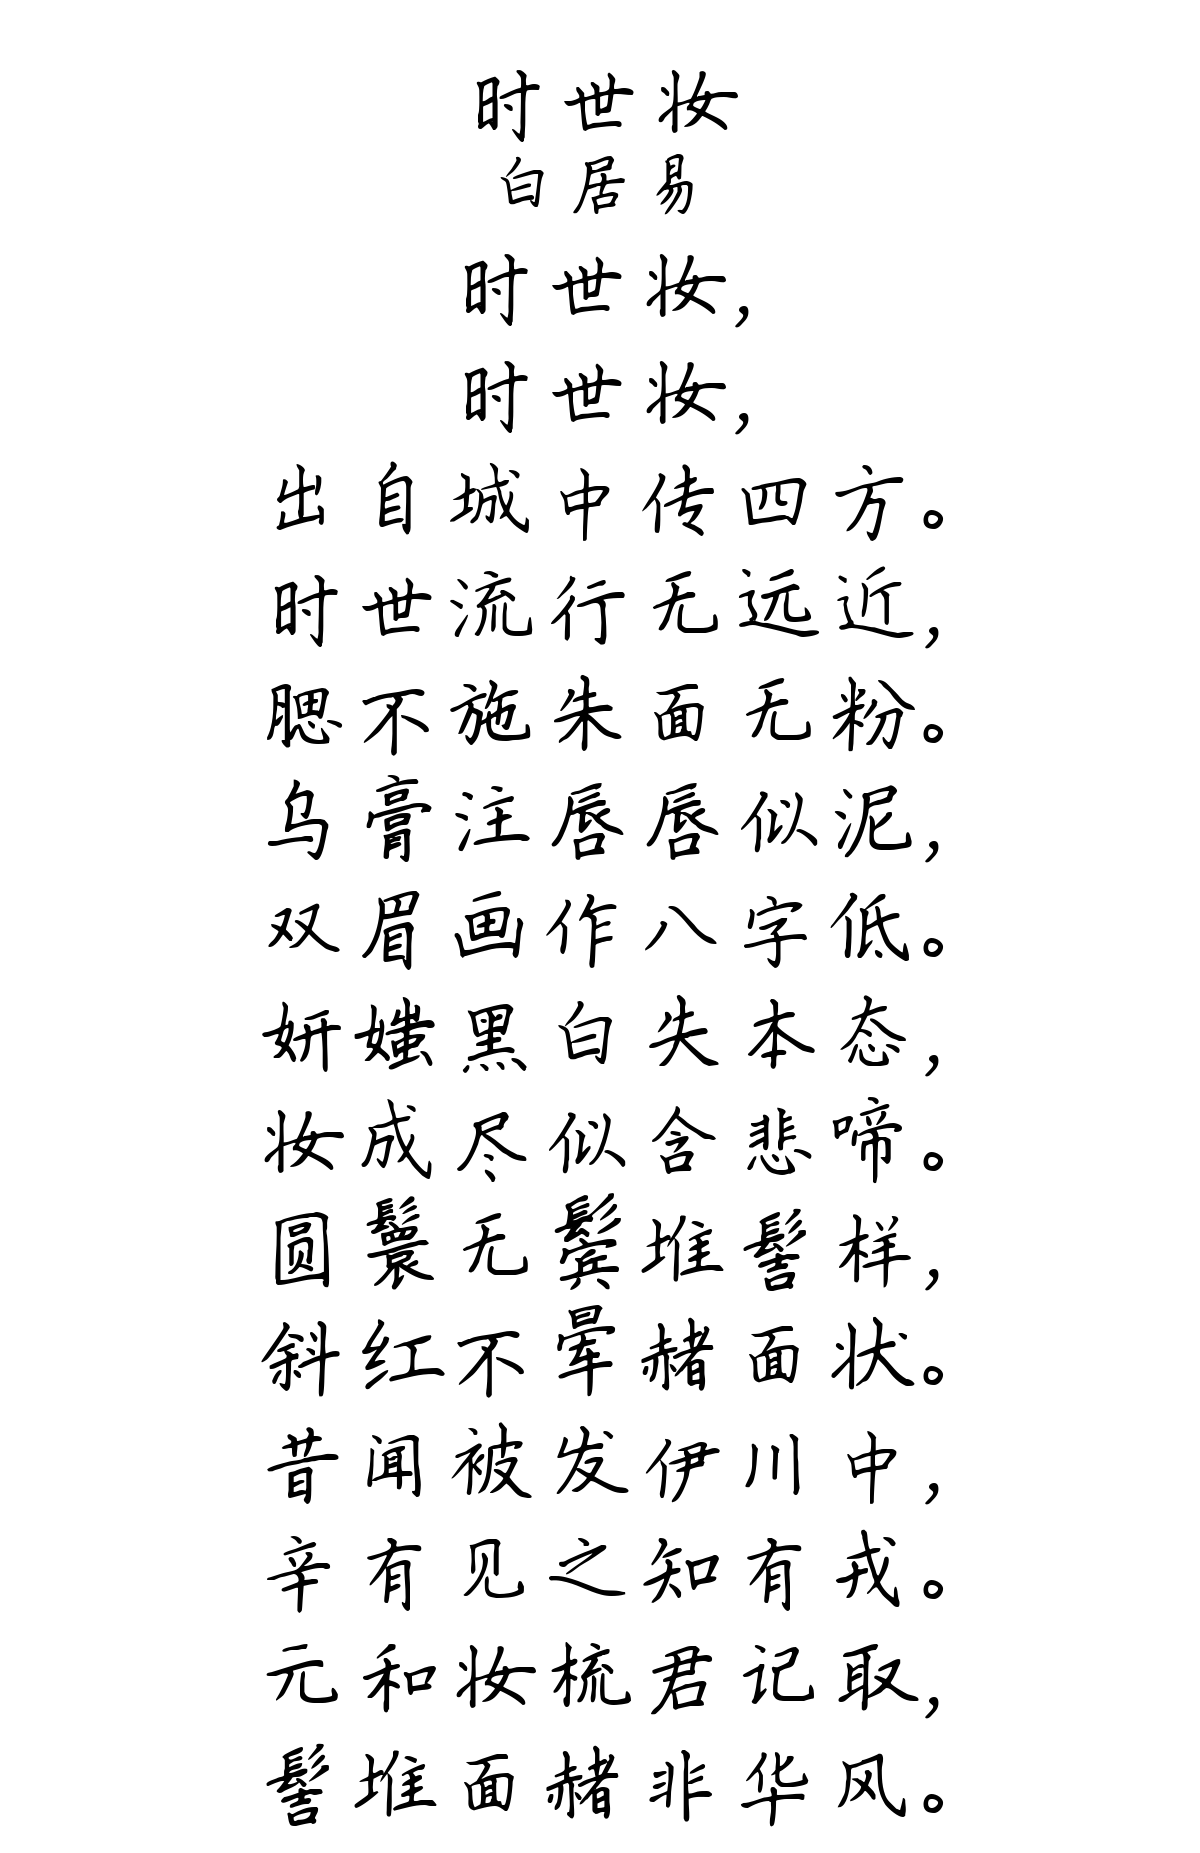 时世妆
白居易
时世妆，
时世妆，
出自城中传四方。
时世流行无远近，
腮不施朱面无粉。
乌膏注唇唇似泥，
双眉画作八字低。
妍媸黑白失本态，
妆成尽似含悲啼。
圆鬟无鬓堆髻样，
斜红不晕赭面状。
昔闻被发伊川中，
辛有见之知有戎。
元和妆梳君记取，
髻堆面赭非华风。